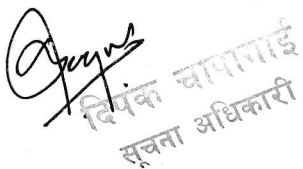 दिपंक चापागाई
सूचना अधिकारी